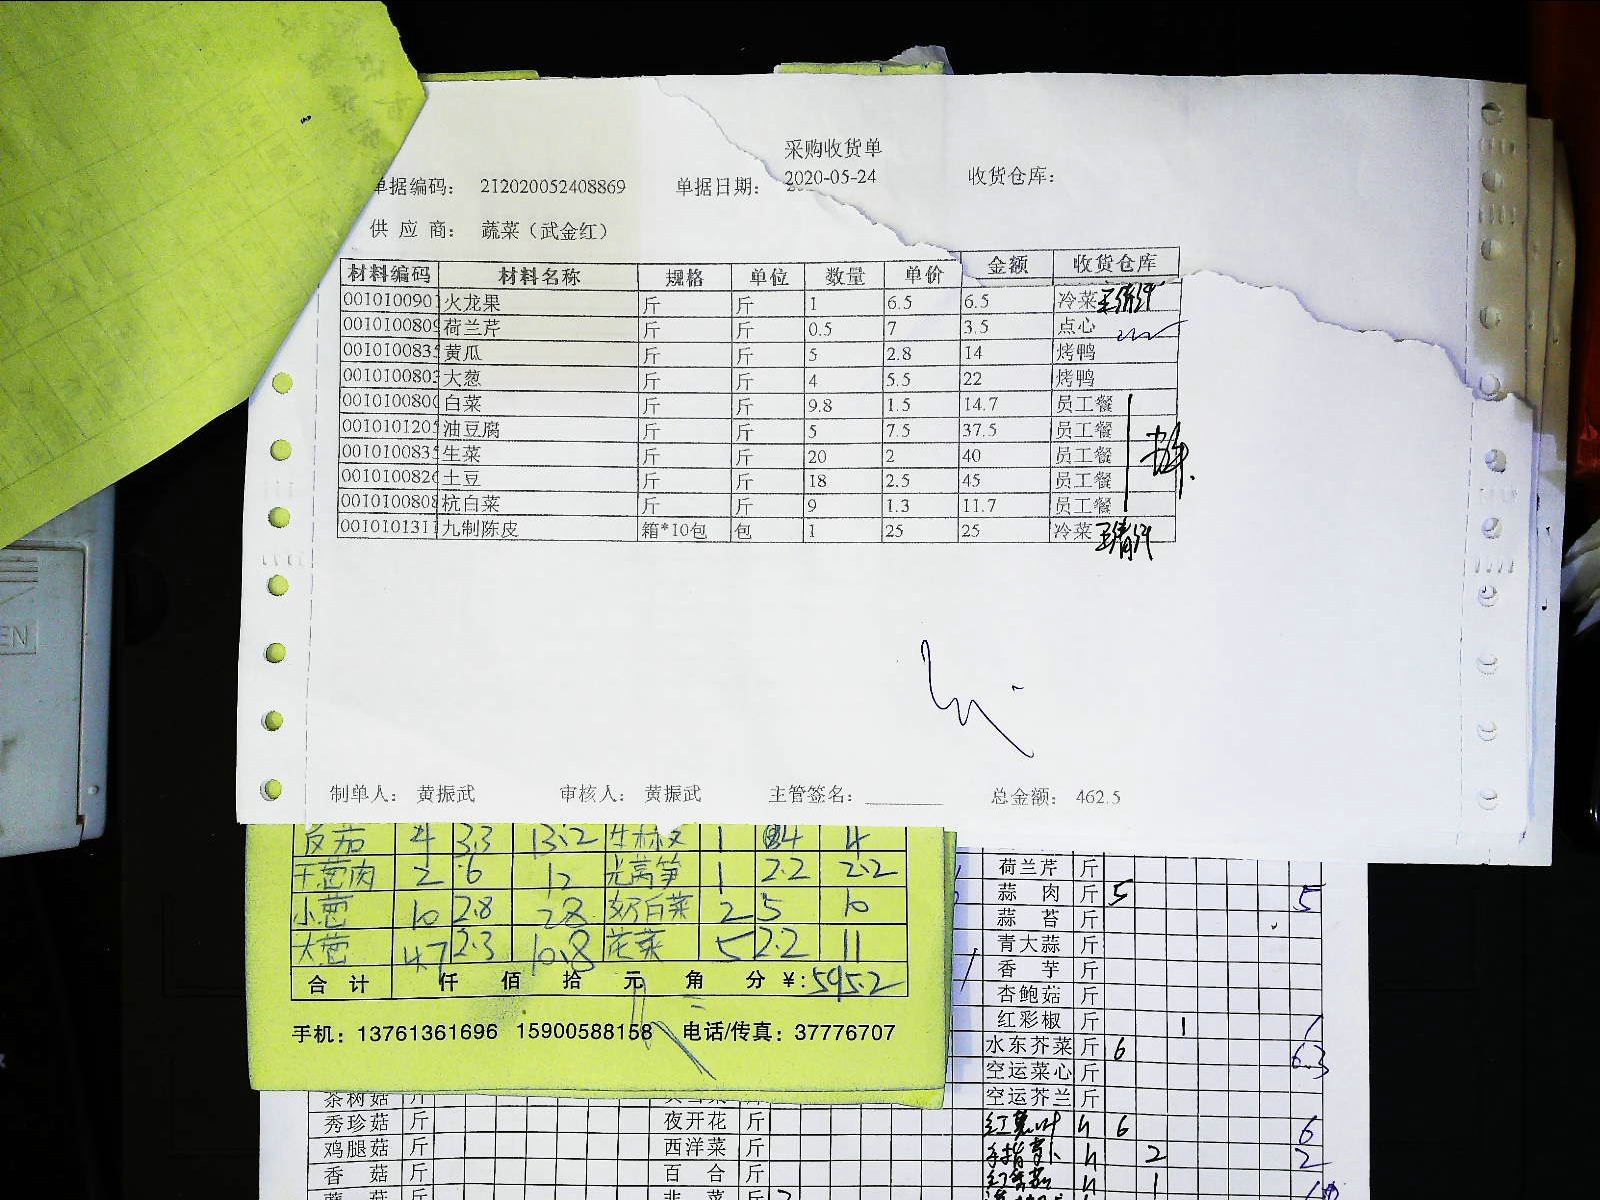 采购收货单
单据编码： 212020052408869 单据日期： 2020-05-24 收货仓库：
供 应 商： 蔬菜（武金红）
材料编码 材料名称 规格 单位 数量 单价 金额 收货仓库
0010100901 火龙果 斤 斤 1 6.5 6.5 冷菜
0010100809 荷兰芹 斤 斤 0.5 7 3.5 点心
0010100835 黄瓜 斤 斤 5 2.8 14 烤鸭
0010100803 大葱 斤 斤 4 5.5 22 烤鸭
0010100800 白菜 斤 斤 9.8 1.5 14.7 员工餐
0010101205 油豆腐 斤 斤 5 7.5 37.5 员工餐
0010100835 生菜 斤 斤 20 2 40 员工餐
0010100826 土豆 斤 斤 18 2.5 45 员工餐
0010100808 杭白菜 斤 斤 9 1.3 11.7 员工餐
0010101311 九制陈皮 箱*10包 包 1 25 25 冷菜
制单人： 黄振武 审核人： 黄振武 主管签名： 总金额： 462.5
4 3.3 13.2 1 4 4
干葱肉 2 6 12 光莴笋 1 2.2 2.2
小葱 10 2.8 28 奶白菜 2 5 10
大葱 4.7 2.3 10.8 花菜 5 2.2 11
合 计 仟 佰 拾 元 角 分 ¥: 595.2
手机：13761361696 15900588158 电话/传真：37776707
荷兰芹 斤
蒜 肉 斤 5 5
蒜 苔 斤
青大蒜 斤
香 芋 斤
杏鲍菇 斤
红彩椒 斤 1 1
水东芥菜 斤 6 6.3
空运菜心 斤
空运芥兰 斤
茶树菇 斤
秀珍菇 斤 夜开花 斤 6 6
鸡腿菇 斤 西洋菜 斤 手指萝卜 2 2
香 菇 斤 百 合 斤 1